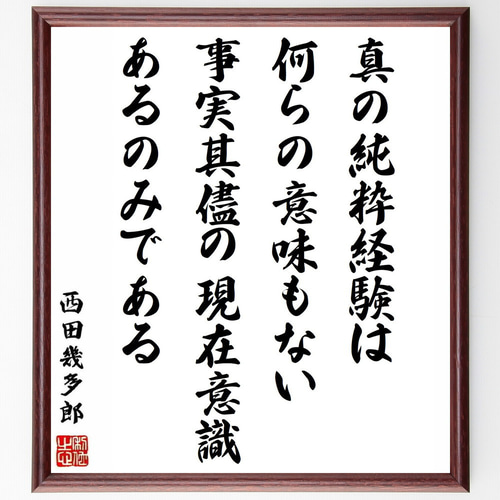 真の純粋経験は
何らの意味もない
事実其儘の現在意識
あるのみである
西田幾多郎